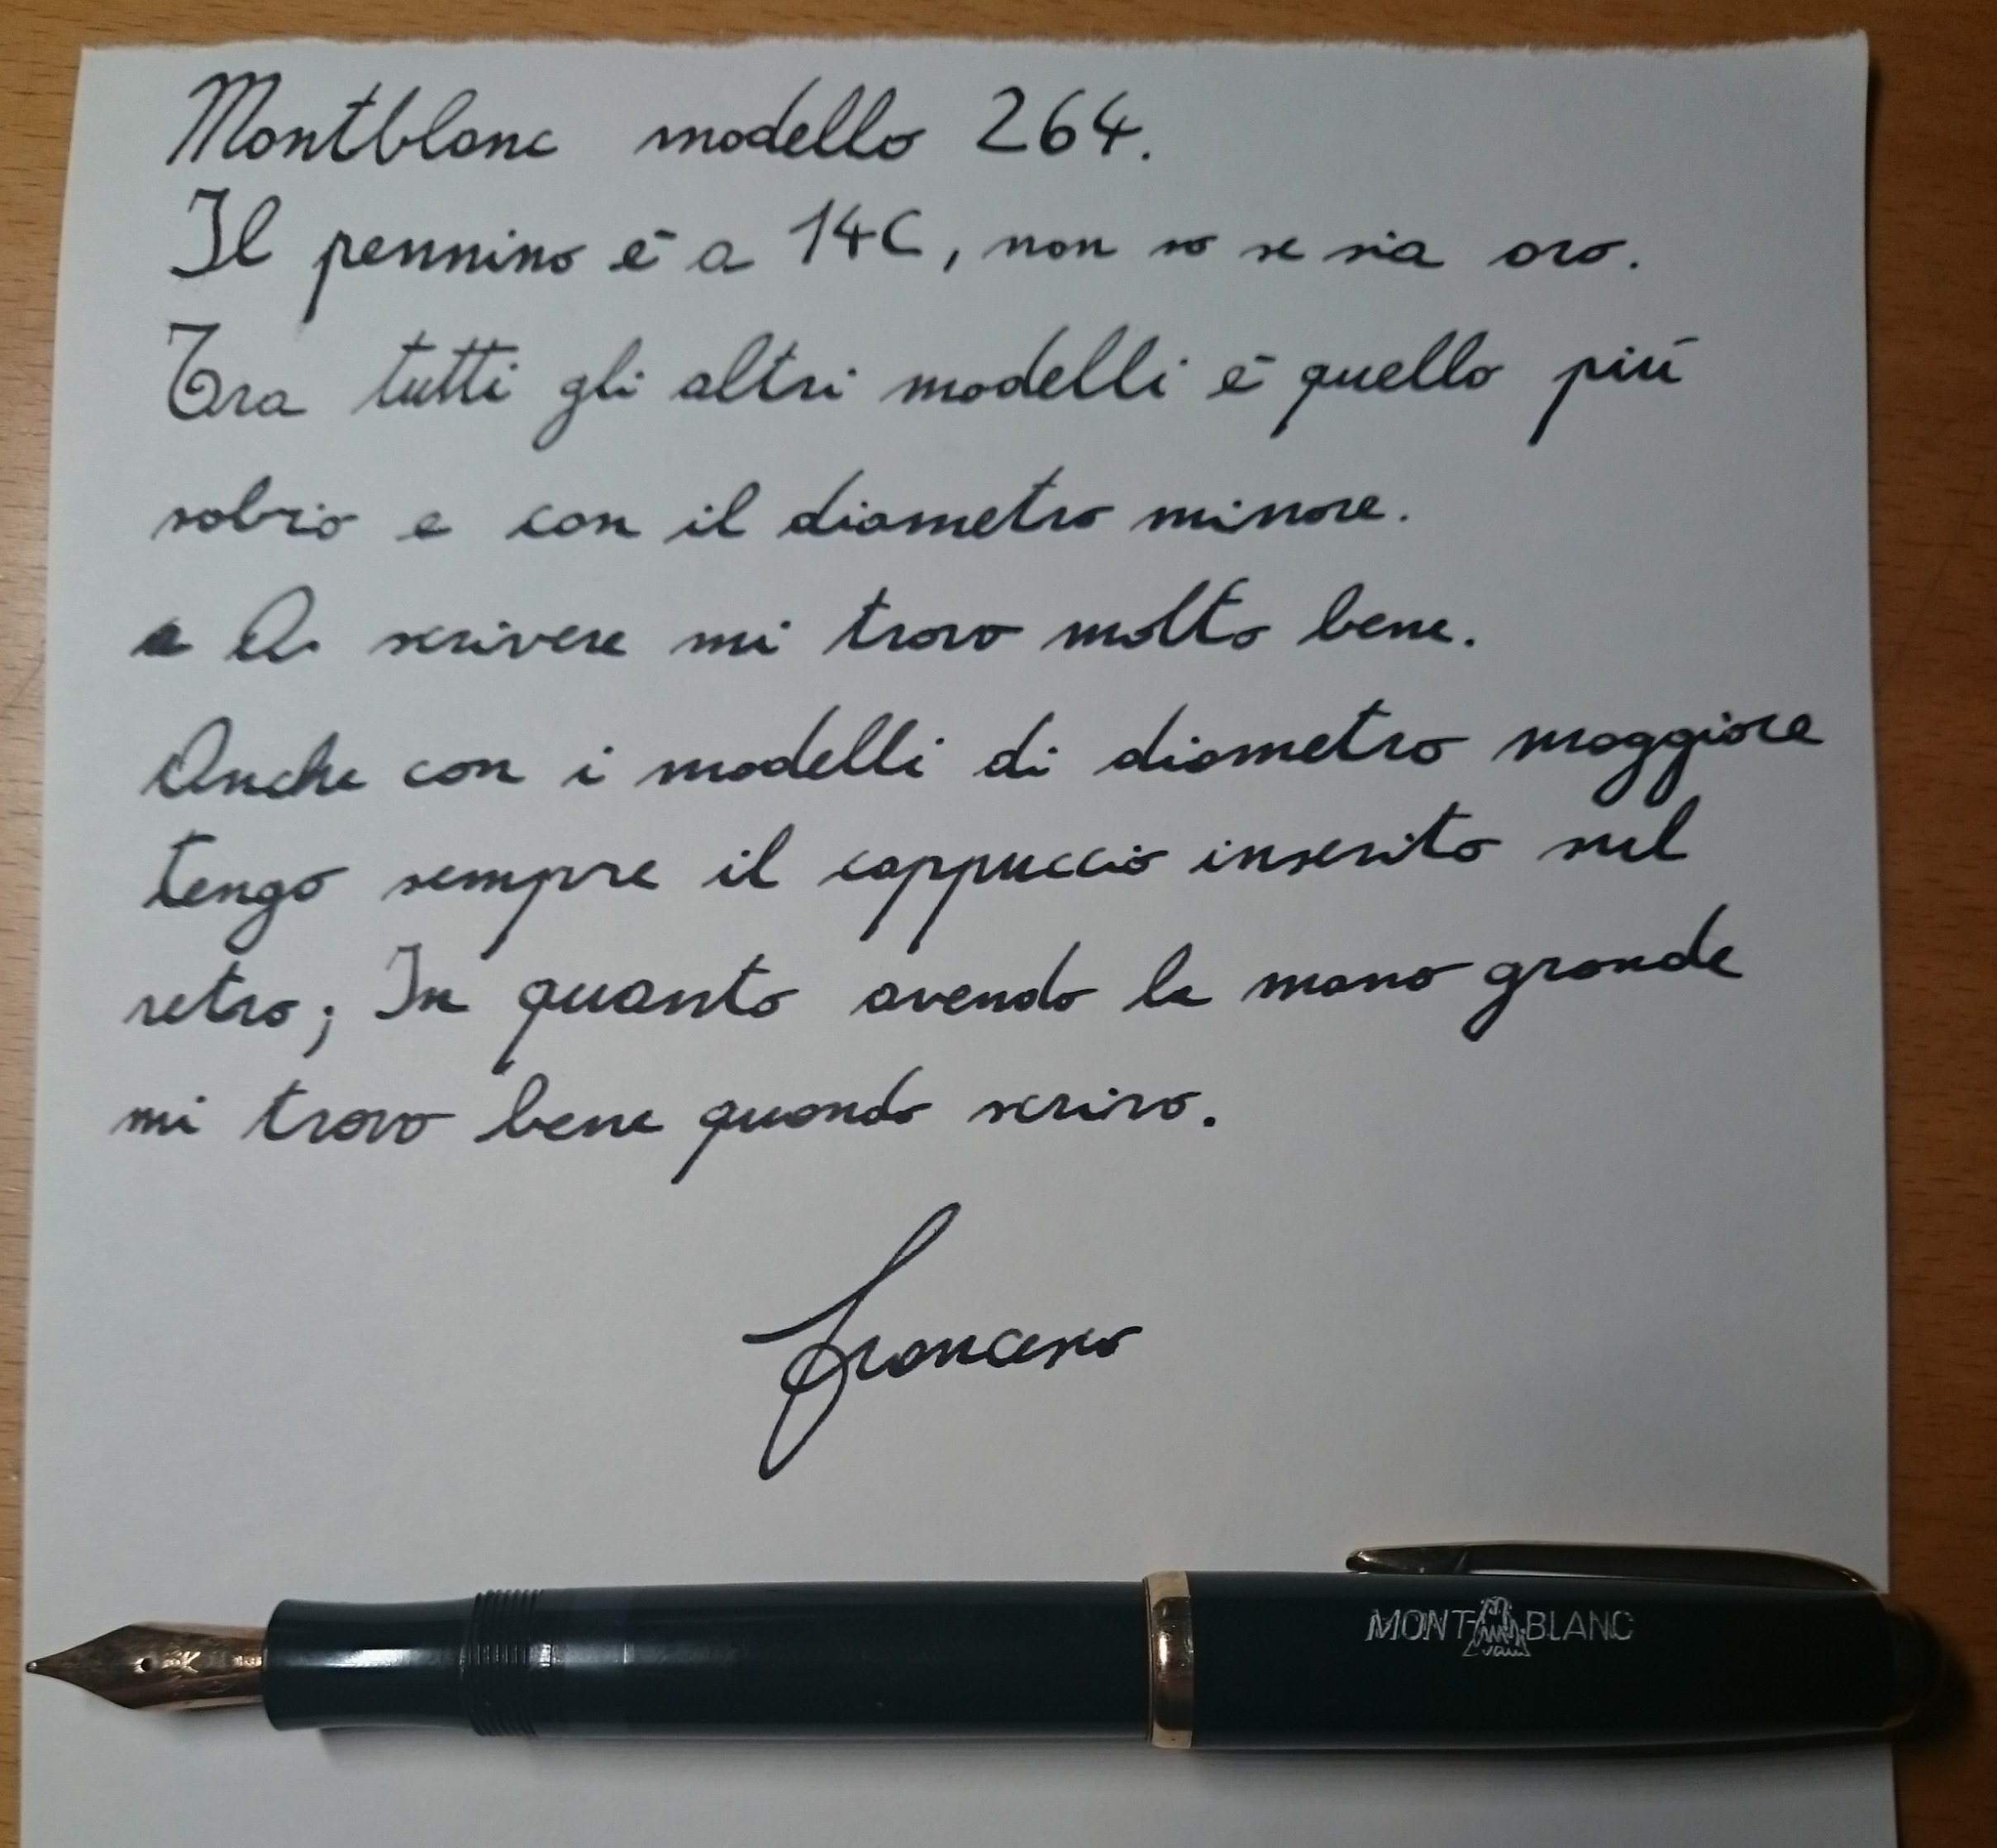 Montblanc modello 264.
Il pennino è a 14C, non so se sia oro.
Tra tutti gli altri modelli è quello più
sobrio e con il diametro minore.
a A scrivere mi trovo molto bene.
Anche con i modelli di diametro maggiore
tengo sempre il cappuccio inserito sul
retro; In quanto avendo la mano grande
mi trovo bene quando scrivo.
Francesco
MONT BLANC